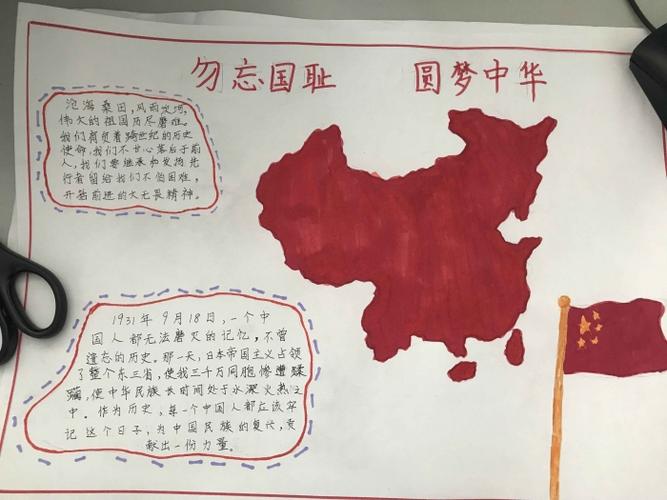 勿忘国耻 圆梦中华
沧海桑田，风雨
伟大的祖国历尽磨难。
我们肩负着跨世纪的历史
使命，我们不甘心落后于前
人，我们要继承和发扬先
行者留给我们不怕困难，
开拓前进的大无畏精神。
1931年9月18日，一个中
国人都无法磨灭的记忆，不曾
遗忘的历史。那一天，日本帝国主义占领
了整个东三省，使我三千万同胞惨遭蹂
躏，使中华民族长时间处于水深火热之
中。作为历史，每一个中国人都应该牢
记这个日子，为中国民族的复兴，贡
献出一份力量。